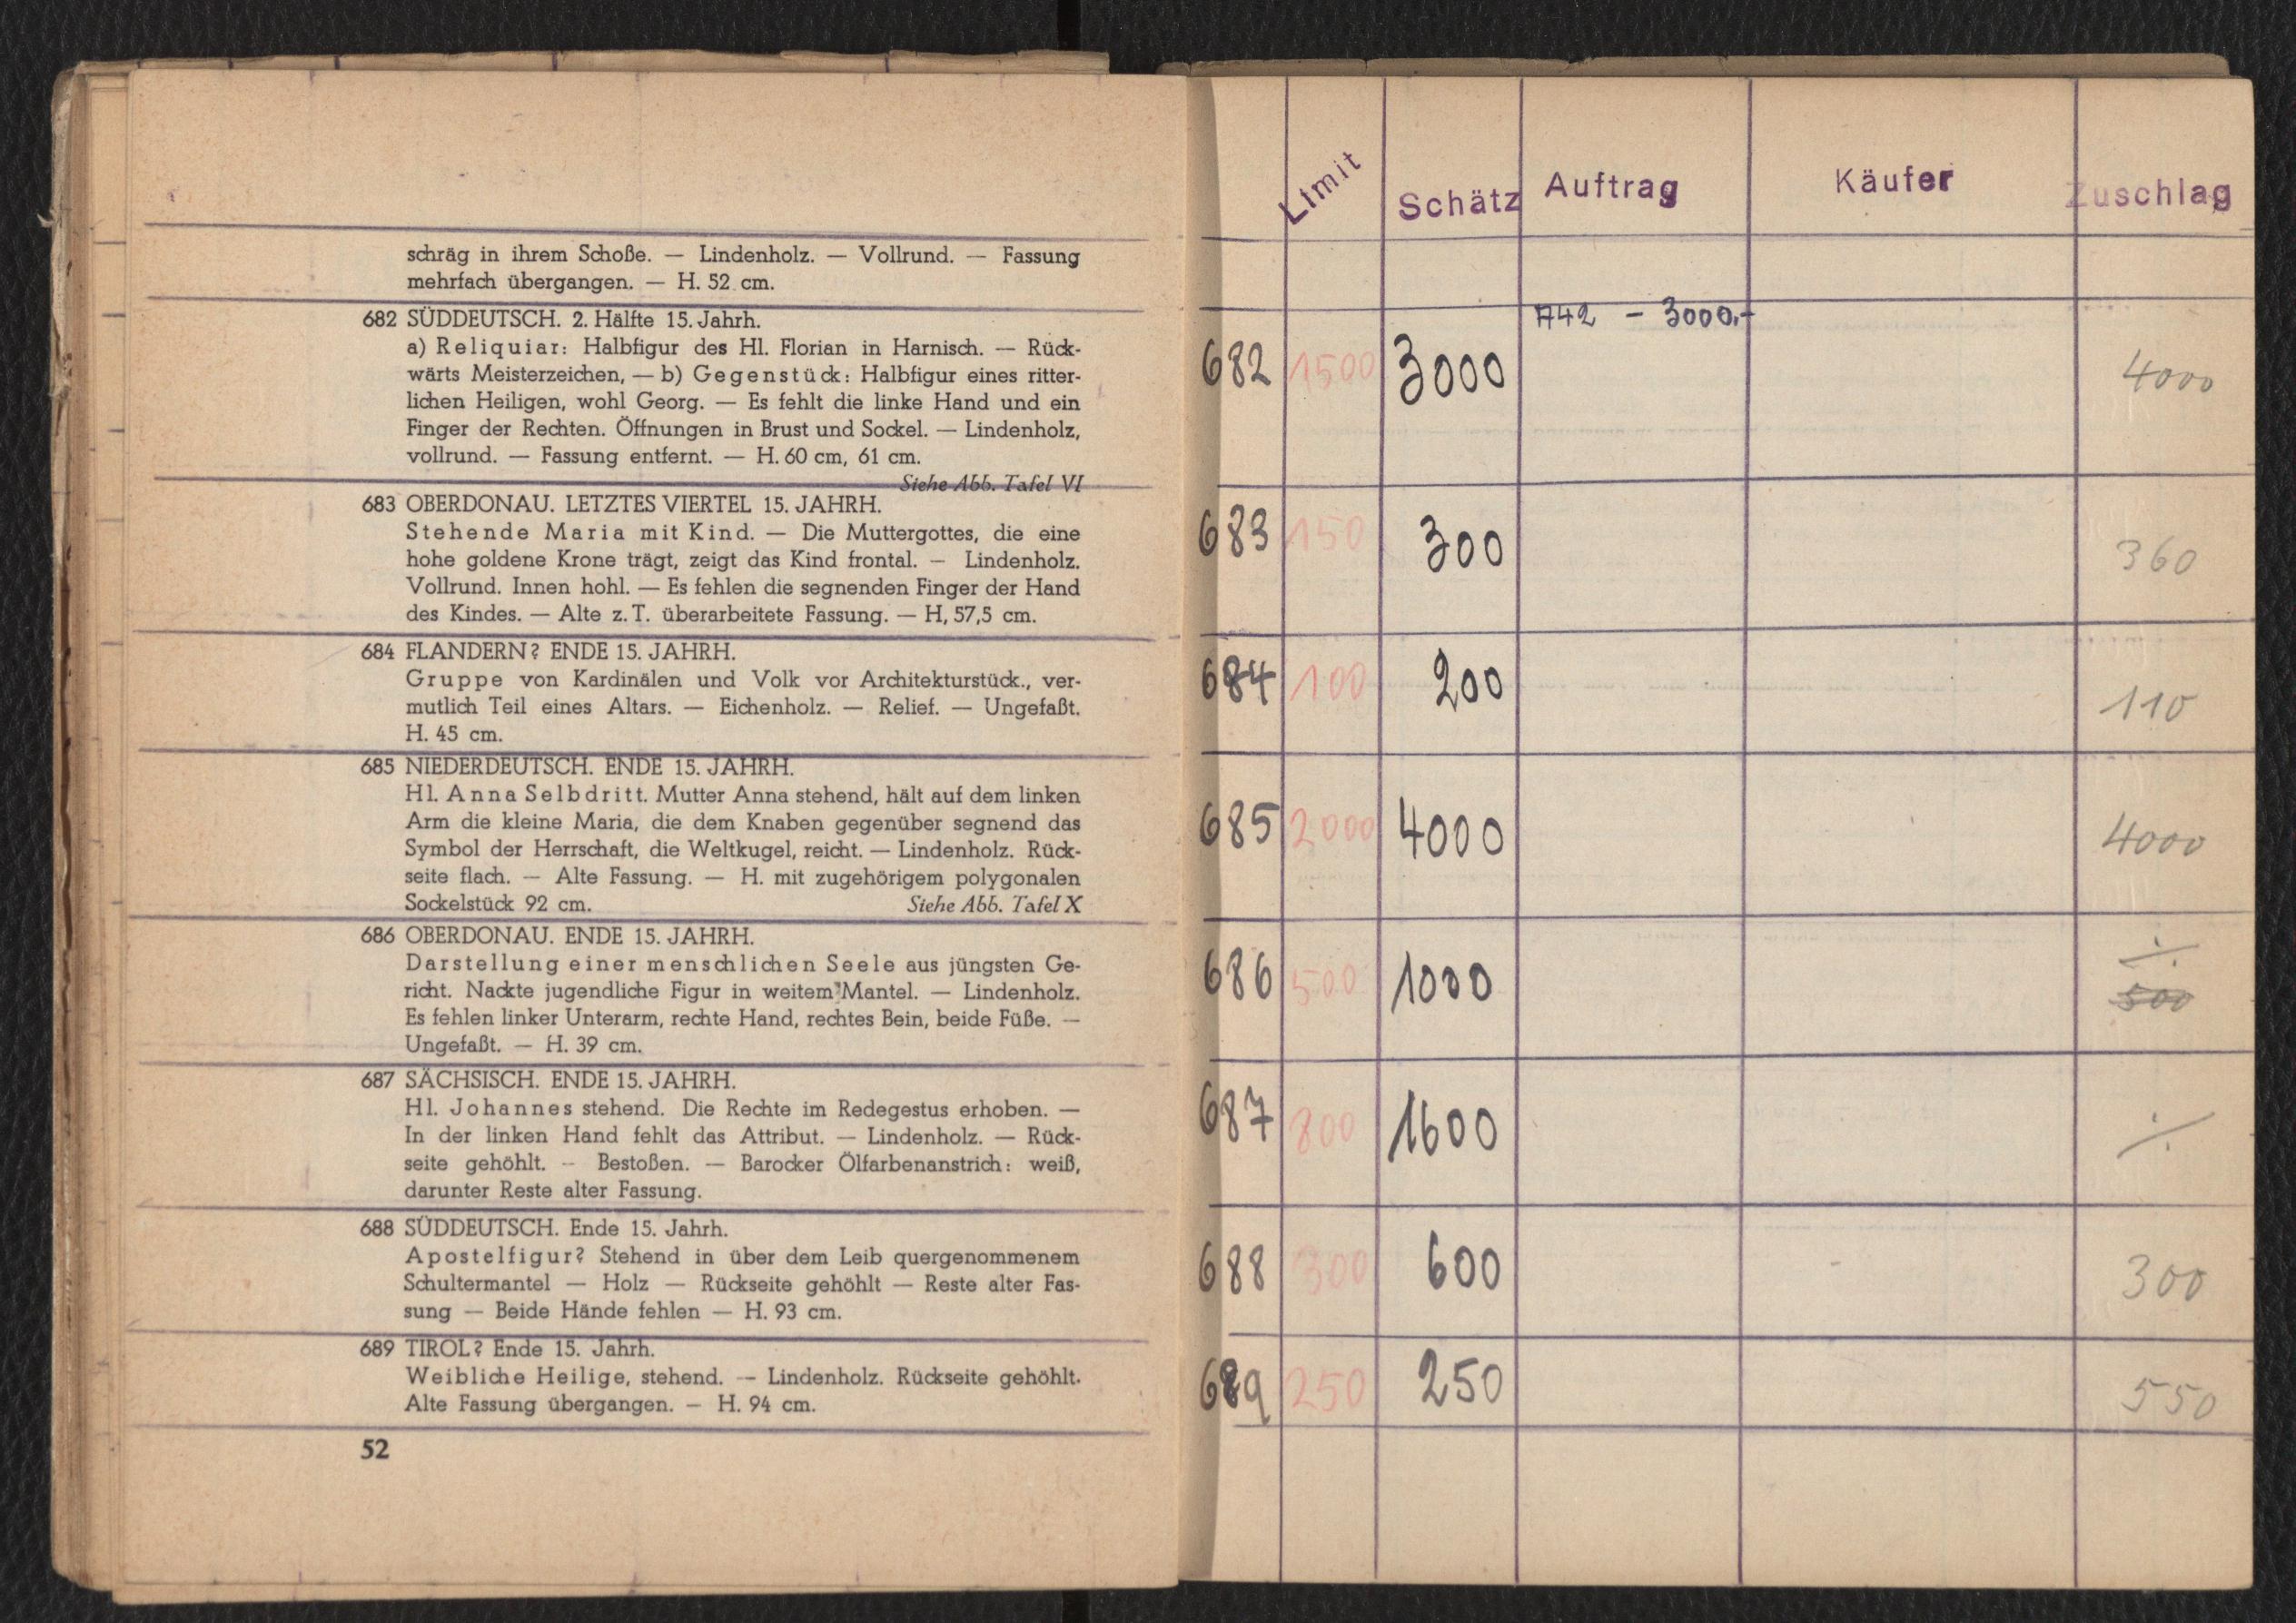 schräg in ihrem Schoße. — Lindenholz. — Vollrund. — Fassung
mehrfach übergangen. — H. 52 cm.
682 SÜDDEUTSCH. 2. Hälfte 15. Jahrh.
a) Reliquiar: Halbfigur des Hl. Florian in Harnisch. — Rück-
wärts Meisterzeichen, — b) Gegenstück: Halbfigur eines ritter-
lichen Heiligen, wohl Georg. — Es fehlt die linke Hand und ein
Finger der Rechten. Öffnungen in Brust und Sockel. — Lindenholz,
vollrund. — Fassung entfernt. — H. 60 cm, 61 cm.
Siehe Abb. Tafel VI
683 OBERDONAU. LETZTES VIERTEL 15. JAHRH.
Stehende Maria mit Kind. — Die Muttergottes, die eine
hohe goldene Krone trägt, zeigt das Kind frontal. — Lindenholz.
Vollrund. Innen hohl. — Es fehlen die segnenden Finger der Hand
des Kindes. — Alte z. T. überarbeitete Fassung. — H, 57,5 cm.
684 FLANDERN? ENDE 15. JAHRH.
Gruppe von Kardinälen und Volk vor Architekturstück., ver-
mutlich Teil eines Altars. — Eichenholz. — Relief. — Ungefaßt.
H. 45 cm.
685 NIEDERDEUTSCH. ENDE 15. JAHRH.
Hl. Anna Selbdritt. Mutter Anna stehend, hält auf dem linken
Arm die kleine Maria, die dem Knaben gegenüber segnend das
Symbol der Herrschaft, die Weltkugel, reicht. — Lindenholz. Rück-
seite flach. — Alte Fassung. — H. mit zugehörigem polygonalen
Sockelstück 92 cm. Siehe Abb. Tafel X
686 OBERDONAU. ENDE 15. JAHRH.
Darstellung einer menschlichen Seele aus jüngsten Ge-
richt. Nackte jugendliche Figur in weitem Mantel. — Lindenholz.
Es fehlen linker Unterarm, rechte Hand, rechtes Bein, beide Füße. —
Ungefaßt. — H. 39 cm.
687 SÄCHSISCH. ENDE 15. JAHRH.
Hl. Johannes stehend. Die Rechte im Redegestus erhoben. —
In der linken Hand fehlt das Attribut. — Lindenholz. — Rück-
seite gehöhlt. — Bestoßen. — Barocker Ölfarbenanstrich: weiß,
darunter Reste alter Fassung.
688 SÜDDEUTSCH. Ende 15. Jahrh.
Apostelfigur? Stehend in über dem Leib quergenommenem
Schultermantel — Holz — Rückseite gehöhlt — Reste alter Fas-
sung — Beide Hände fehlen — H. 93 cm.
689 TIROL? Ende 15. Jahrh.
Weibliche Heilige, stehend. — Lindenholz. Rückseite gehöhlt.
Alte Fassung übergangen. — H. 94 cm.
52
Limit Schätz Auftrag Käufer Zuschlag
A42 - 3000.-
682 1500 3000 4000
683 150 300 360
684 100 200 110
685 2000 4000 4000
686 500 1000 ·/· 500
687 800 1600 ·/·
688 300 600 300
689 250 250 550